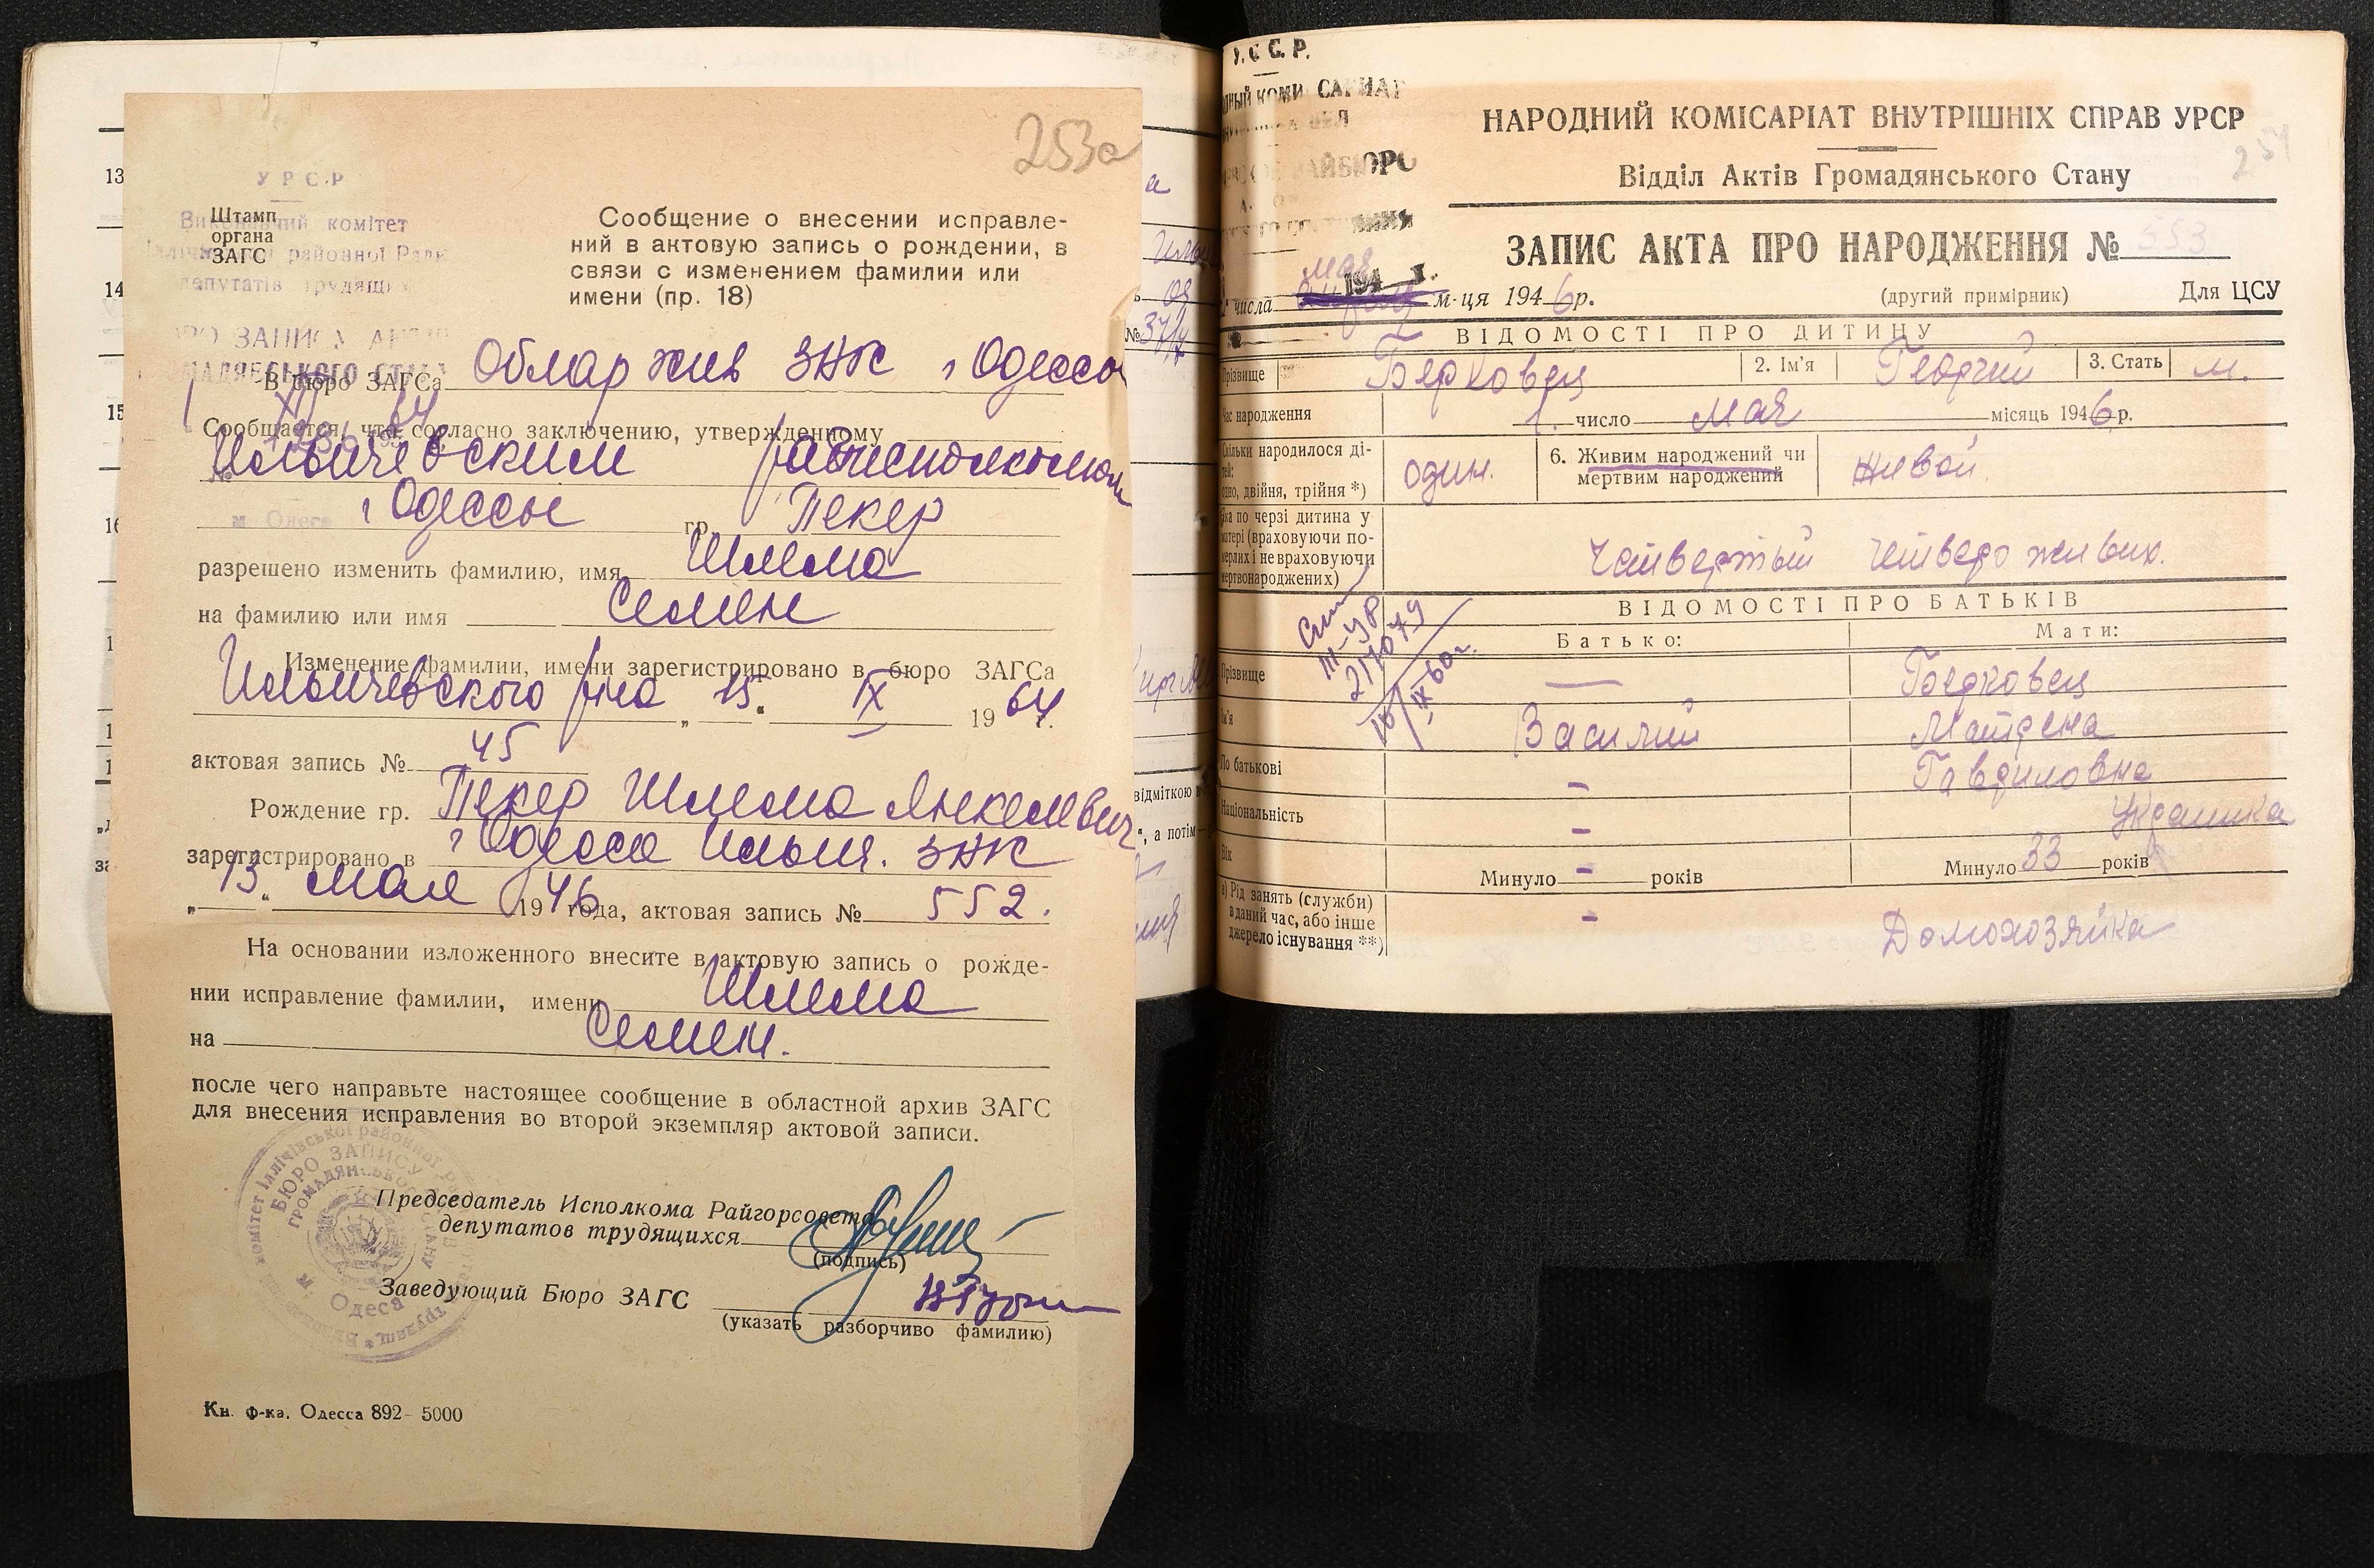 253а
УРСР
Виконавчий комітет
Іллічівської районної Ради
депутатів трудящих
БЮРО ЗАПИСУ АКТІВ
ГРОМАДЯНСЬКОГО СТАНУ
м. Одеса
Штамп
органа
ЗАГС
Сообщение о внесении исправле-
ний в актовую запись о рождении, в
связи с изменением фамилии или
имени (пр. 18)
В бюро ЗАГСа Облархив ЗАГС г Одессы
Сообщается, что согласно заключению, утвержденному
Ильичевским райисполкомом
г Одессы гр. Пекер
разрешено изменить фамилию, имя Шлема
на фамилию или имя Семен
Изменение фамилии, имени зарегистрировано в бюро ЗАГСа
Ильичевского р-на „15." IX 1964 г.
актовая запись № 45
Рождение гр. Пекер Шлема Янкелевич
зарегистрировано в г Одесса Ильич. ЗАГС
„13" мая 1946 года, актовая запись № 552.
На основании изложенного внесите в актовую запись о рожде-
нии исправление фамилии, имени Шлема
на Семен.
после чего направьте настоящее сообщение в областной архив ЗАГС
для внесения исправления во второй экземпляр актовой записи.
Председатель Исполкома Райгорсовета
депутатов трудящихся
(подпись)
Заведующий Бюро ЗАГС
(указать разборчиво фамилию)
БЮРО ЗАПИСУ АКТІВ
ГРОМАДЯНСЬКОГО СТАНУ
м. Одеса
Кн. ф-ка. Одесса 892- 5000
13
14
15
16
відміткою
, а потім
У.С.С.Р.
НАРОДНИЙ КОМІСАРІАТ ВНУТРІШНІХ СПРАВ УРСР
254
Відділ Актів Громадянського Стану
ЗАПИС АКТА ПРО НАРОДЖЕННЯ № 553
числа мая м-ця 1946 р.
(другий примірник)
Для ЦСУ
ВІДОМОСТІ ПРО ДИТИНУ
Прізвище Берковец 2. Ім'я Георгий 3. Стать м.
Час народження 1. число мая місяць 1946 р.
Скільки народилося ді-
тей:
одно, двійня, трійня *)
один.
6. Живим народжений чи
мертвим народжений
живой.
Яка по черзі дитина у
матері (враховуючи по-
мерлих і не враховуючи
мертвонароджених)
Четвертый четверо живых.
ВІДОМОСТІ ПРО БАТЬКІВ
Батько: Мати:
III-УР
217079
16/IX 60г.
Прізвище — Берковец
Ім'я Василий Матрена
По батькові - Гавриловна
Національність - Украинка
Вік Минуло - років Минуло 33 років
а) Рід занять (служби)
в даний час, або інше
джерело існування **)
- Домохозяйка